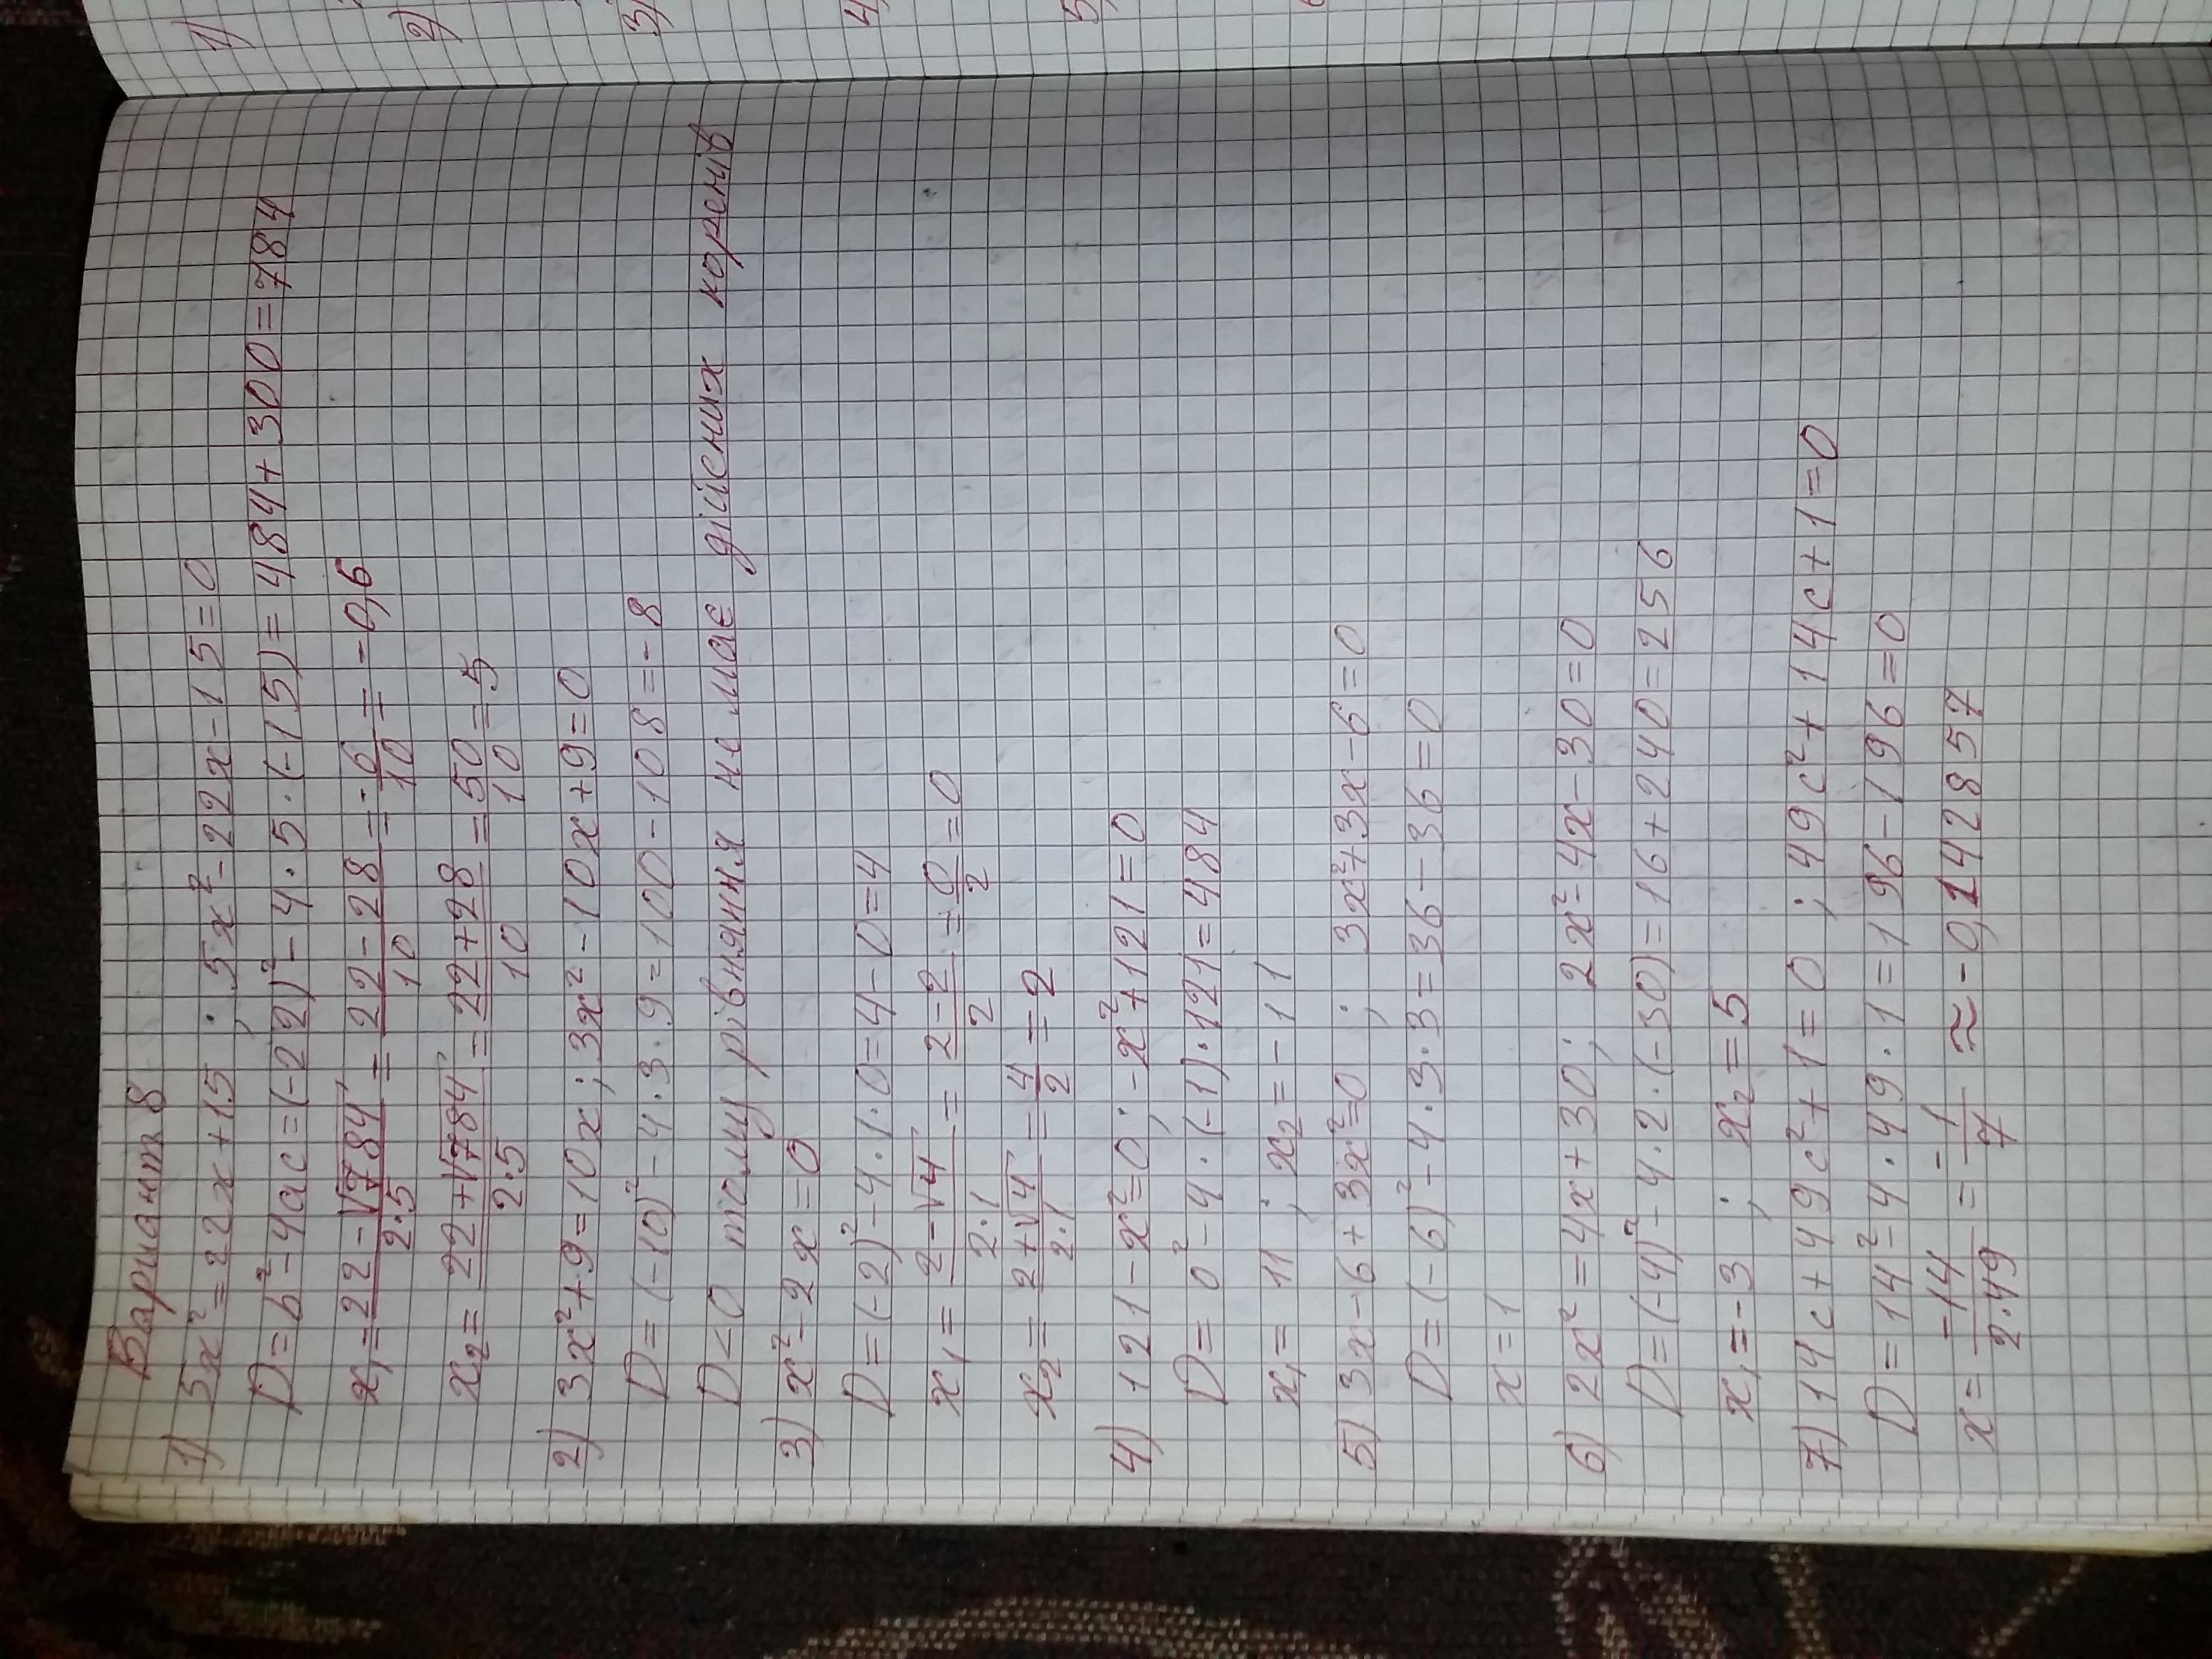 Вариант 8
1) 5x²=22x+15 ; 5x²-22x-15=0
D=b²-4ac=(-22)²-4·5·(-15)=484+300=784
x₁=(22-√784)/(2·5)=(22-28)/10=-6/10=-0,6
x₂=(22+√784)/(2·5)=(22+28)/10=50/10=5
2) 3x²+9=10x; 3x²-10x+9=0
D=(-10)²-4·3·9=100-108=-8
D<0 тому рівняння не має дійсних коренів
3) x²-2x=0
D=(-2)²-4·1·0=4-0=4
x₁=(2-√4)/(2·1)=(2-2)/2=0/2=0
x₂=(2+√4)/(2·1)=4/2=2
4) 121-x²=0; -x²+121=0
D=0²-4·(-1)·121=484
x₁=11 ; x₂=-11
5) 3x-6+3x²=0 ; 3x²+3x-6=0
D=(-6)²-4·3·3=36-36=0
x=1
6) 2x²=4x+30; 2x²-4x-30=0
D=(-4)²-4·2·(-30)=16+240=256
x₁=-3 ; x₂=5
7) 14c+49c²+1=0 ; 49c²+14c+1=0
D=14²-4·49·1=196-196=0
x=-14/(2·49)=-1/7≈-0,142857
1)
2)
3)
4)
5)